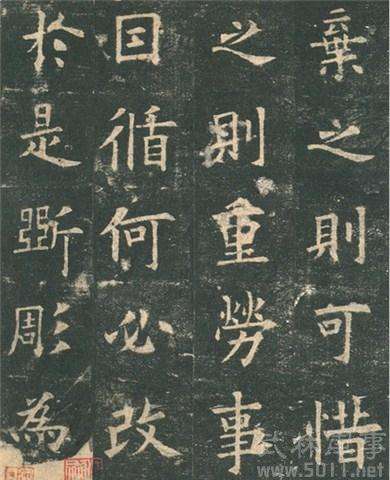 棄之則可惜
之則重勞事
因循何必改
於是斲彫為
武林军事
www.5011.net